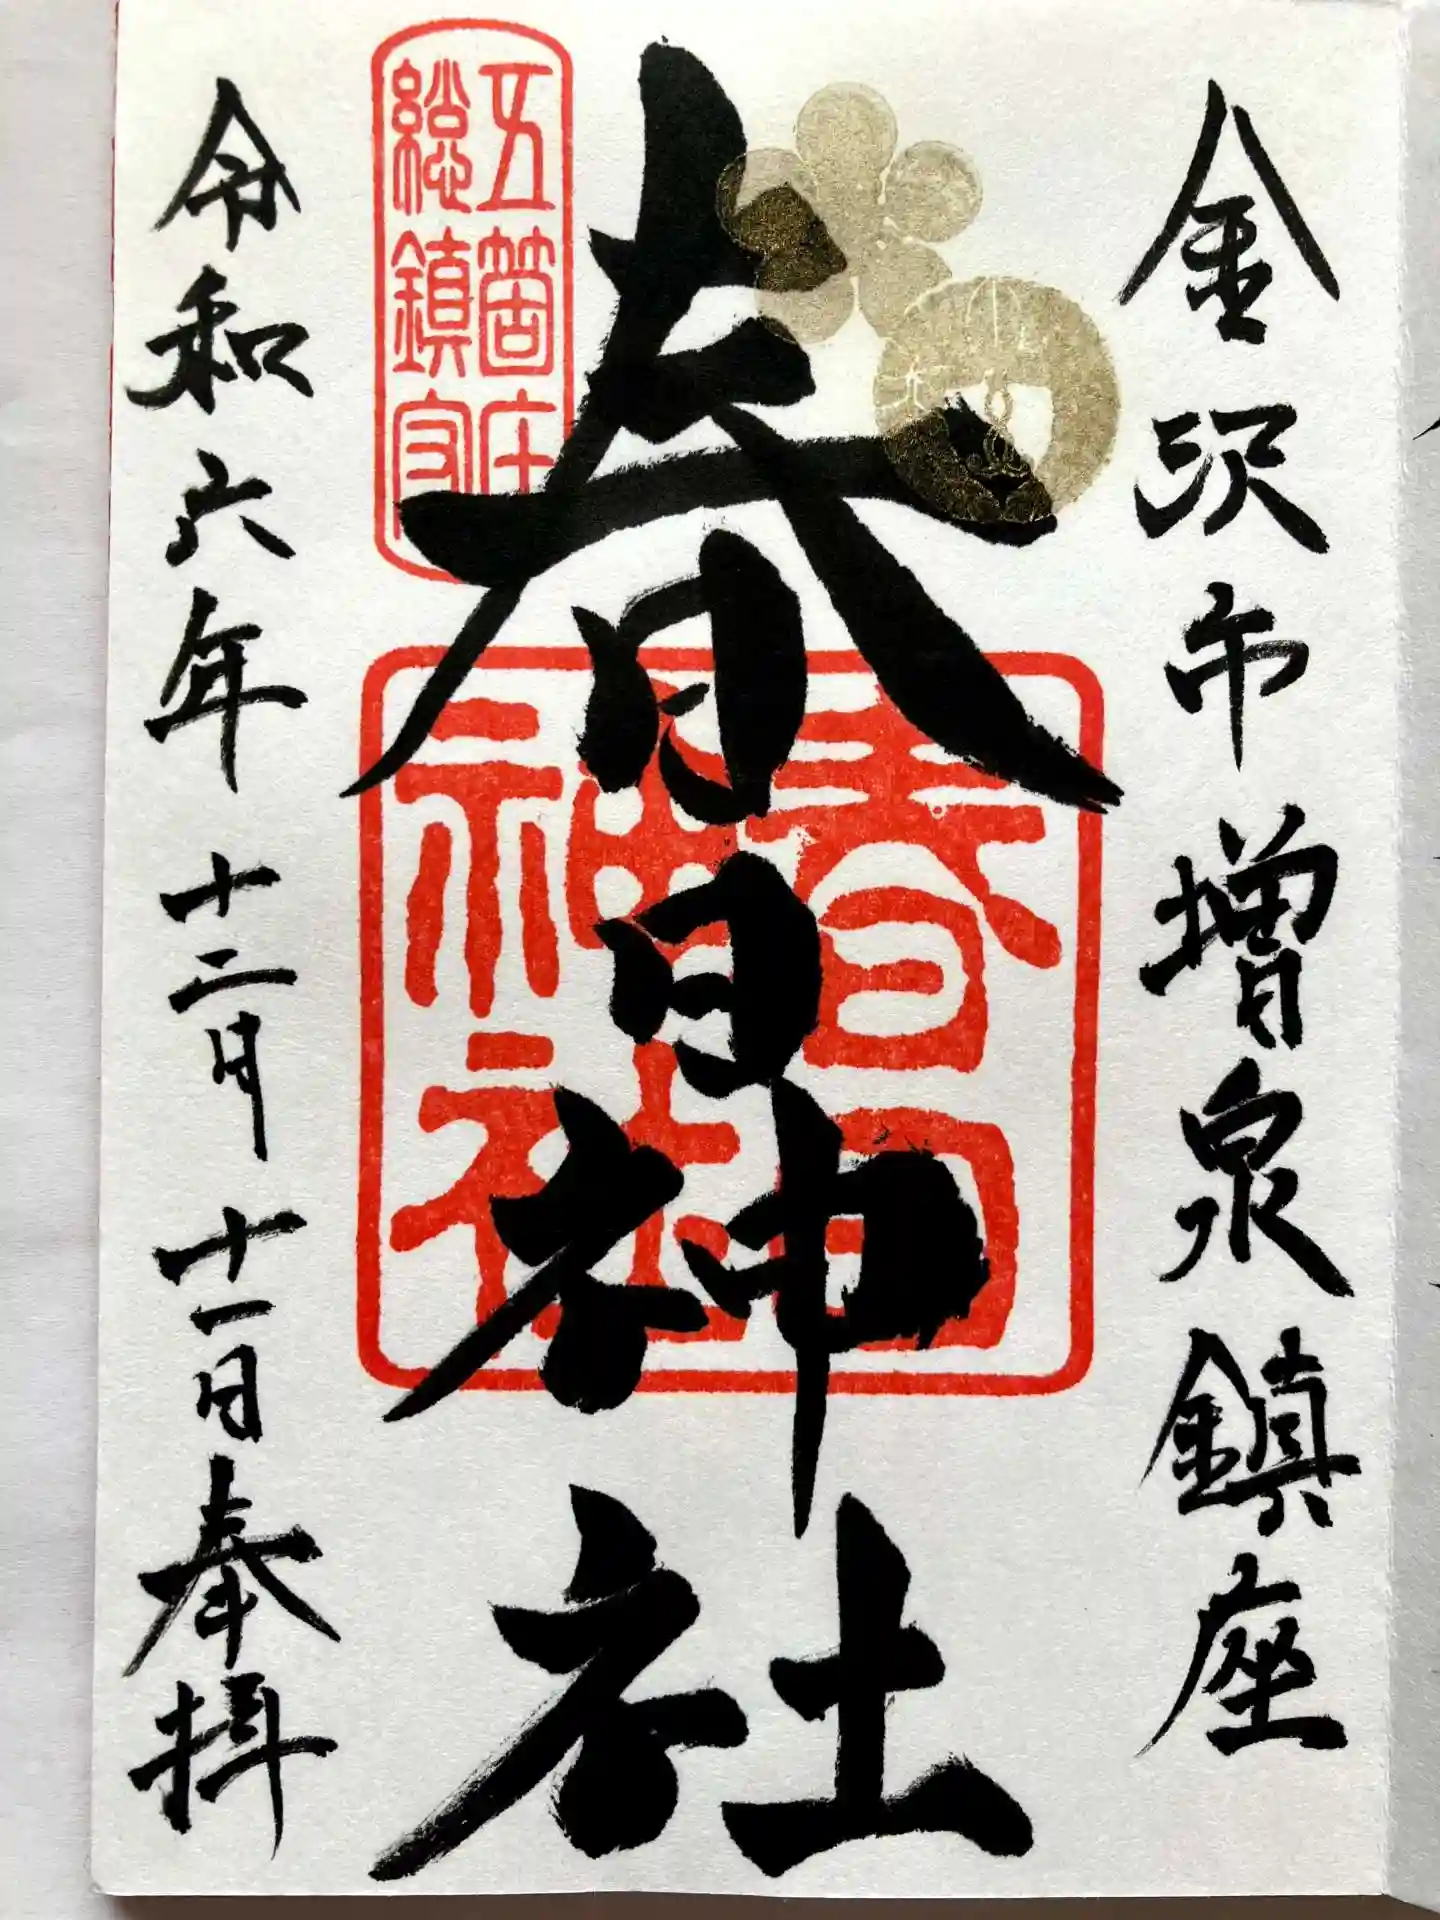 金沢市増泉鎮座
春日神社
五箇庄
総鎮守
春日
神社
令和六年十二月十一日奉拝